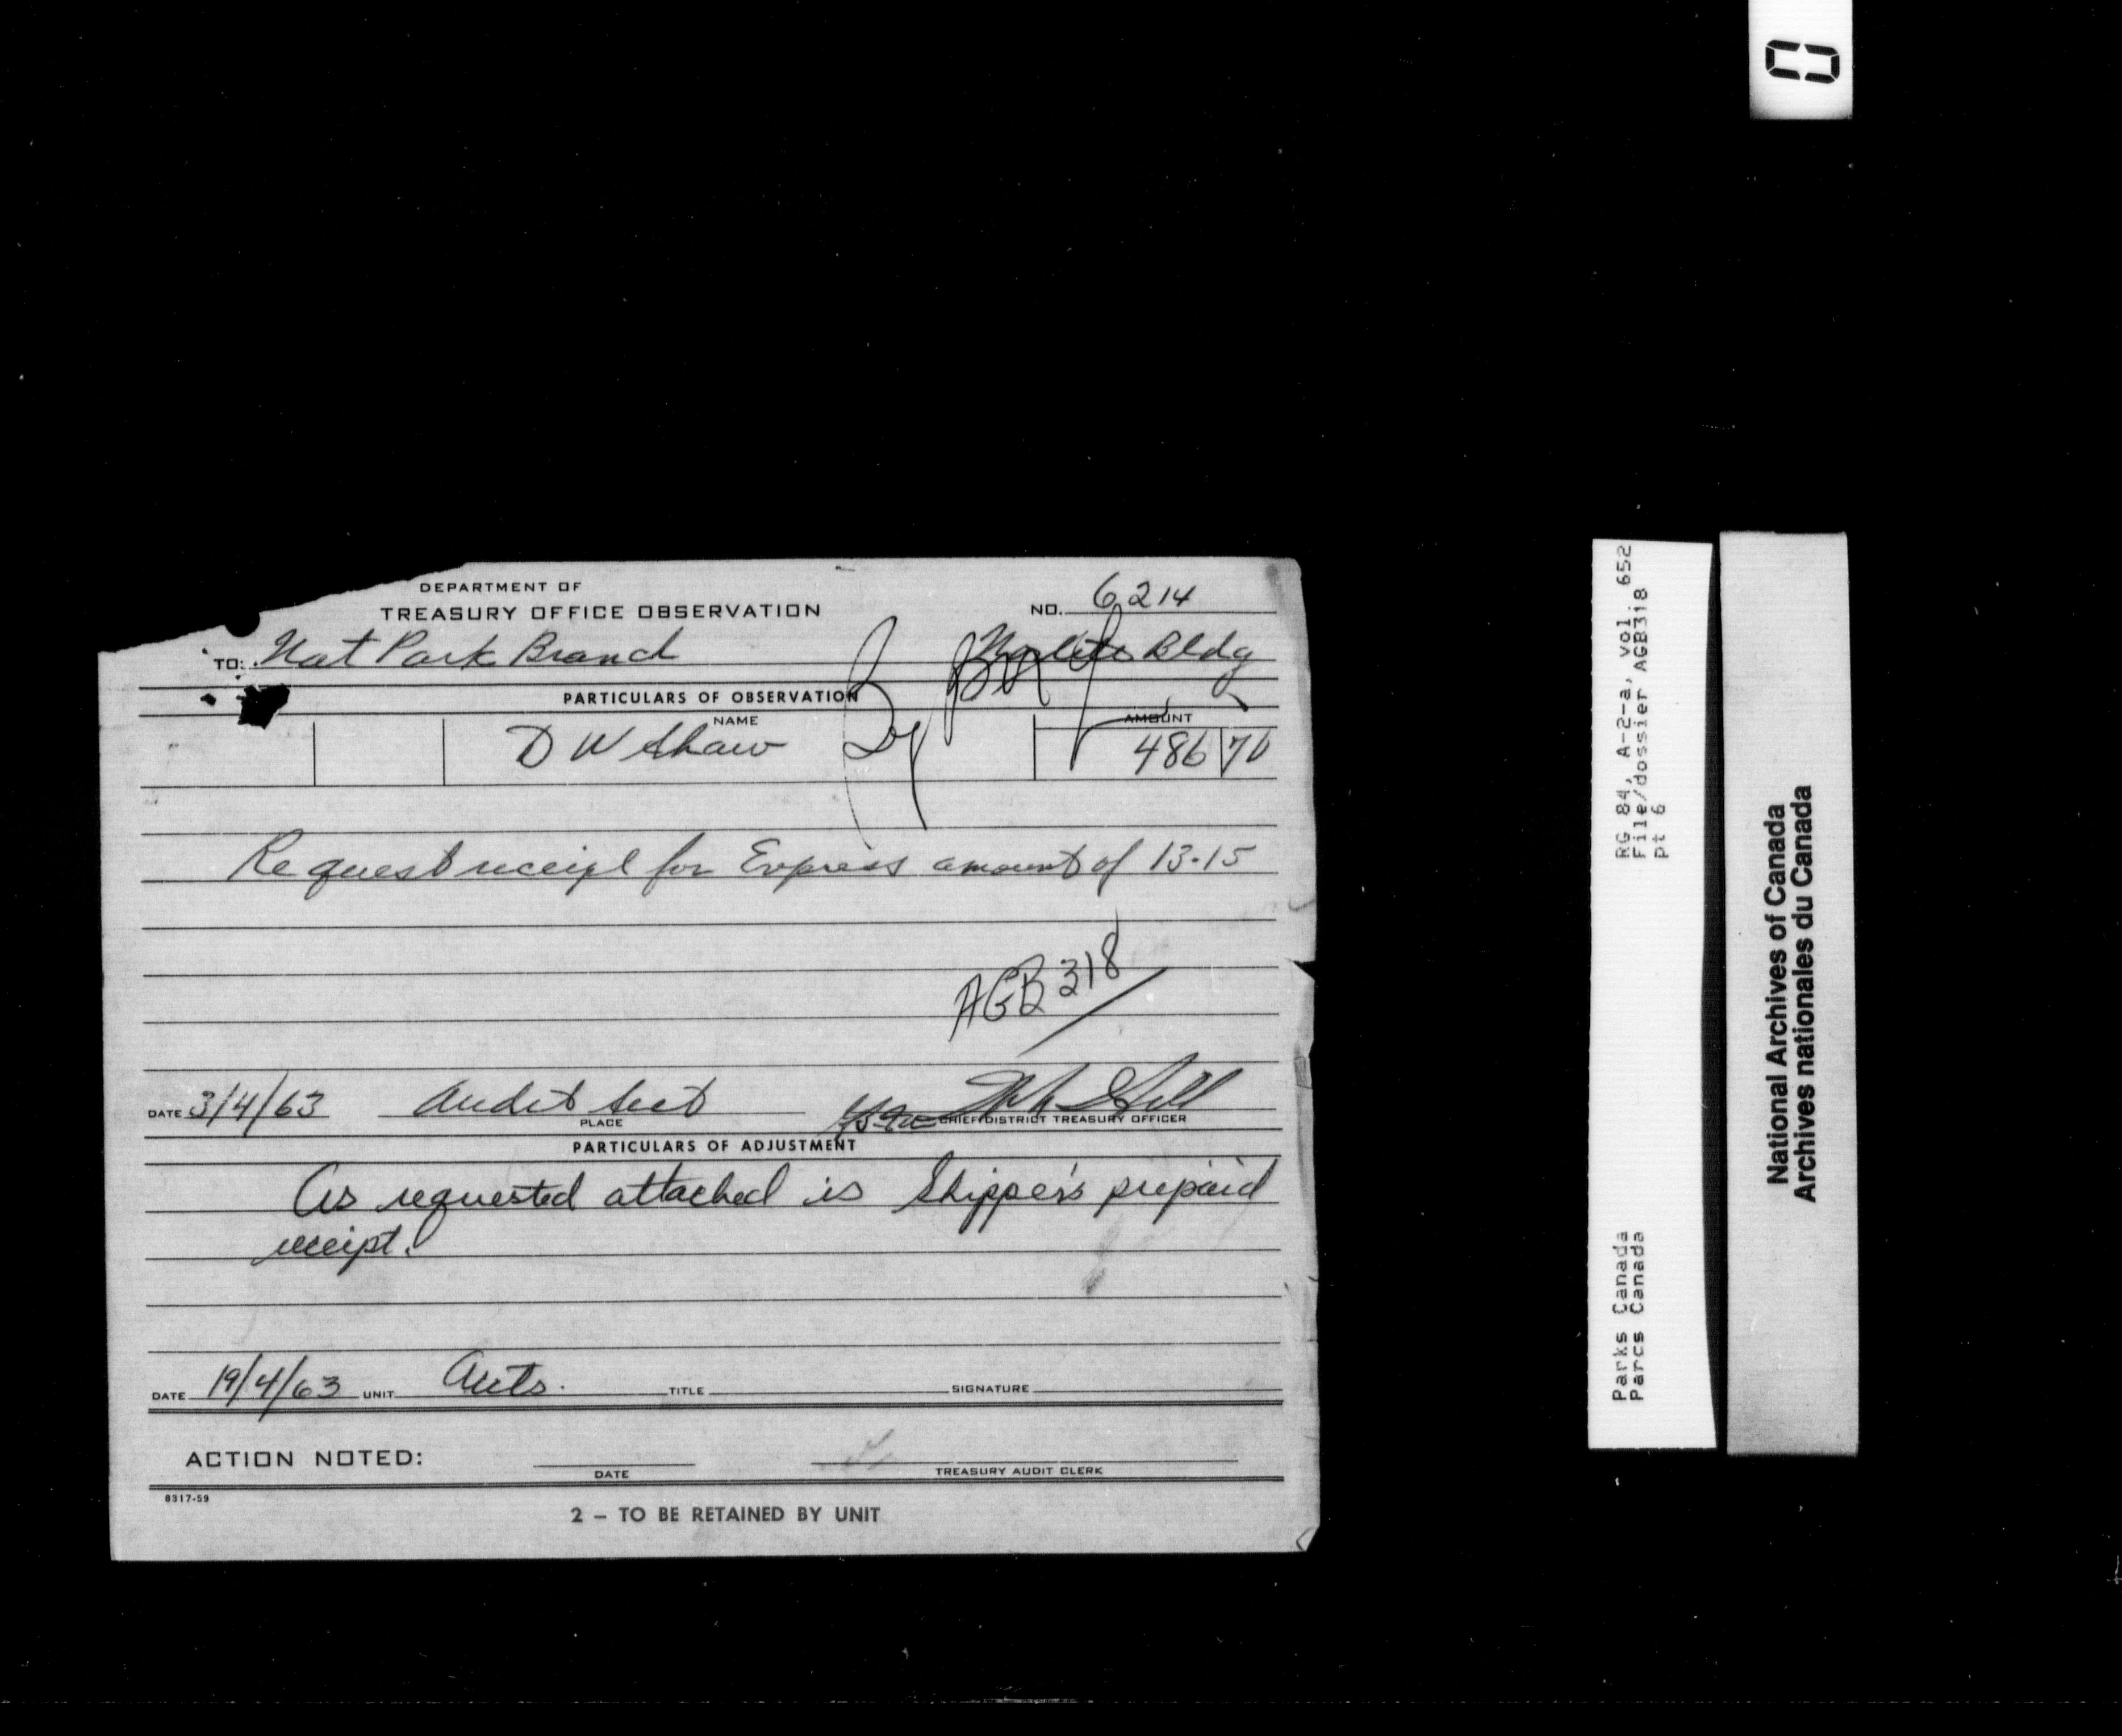 DEPARTMENT OF
TREASURY OFFICE OBSERVATION
NO. 6214
TO: Nat Park Branch Bldg
PARTICULARS OF OBSERVATION
NAME
AMOUNT
D W Shaw 486 70
Request receipt for Express amount of 13.15
AGB 318
DATE 3/4/63 Audit Sect
PLACE
CHIEF/DISTRICT TREASURY OFFICER
PARTICULARS OF ADJUSTMENT
As requested attached is Shipper's prepaid
receipt.
DATE 19/4/63 UNIT Accts. TITLE SIGNATURE
ACTION NOTED:
DATE
TREASURY AUDIT CLERK
8317-59
2 – TO BE RETAINED BY UNIT
RG 84, A-2-a, vol. 652
File/dossier AGB318
pt 6
Parks Canada
Parcs Canada
National Archives of Canada
Archives nationales du Canada